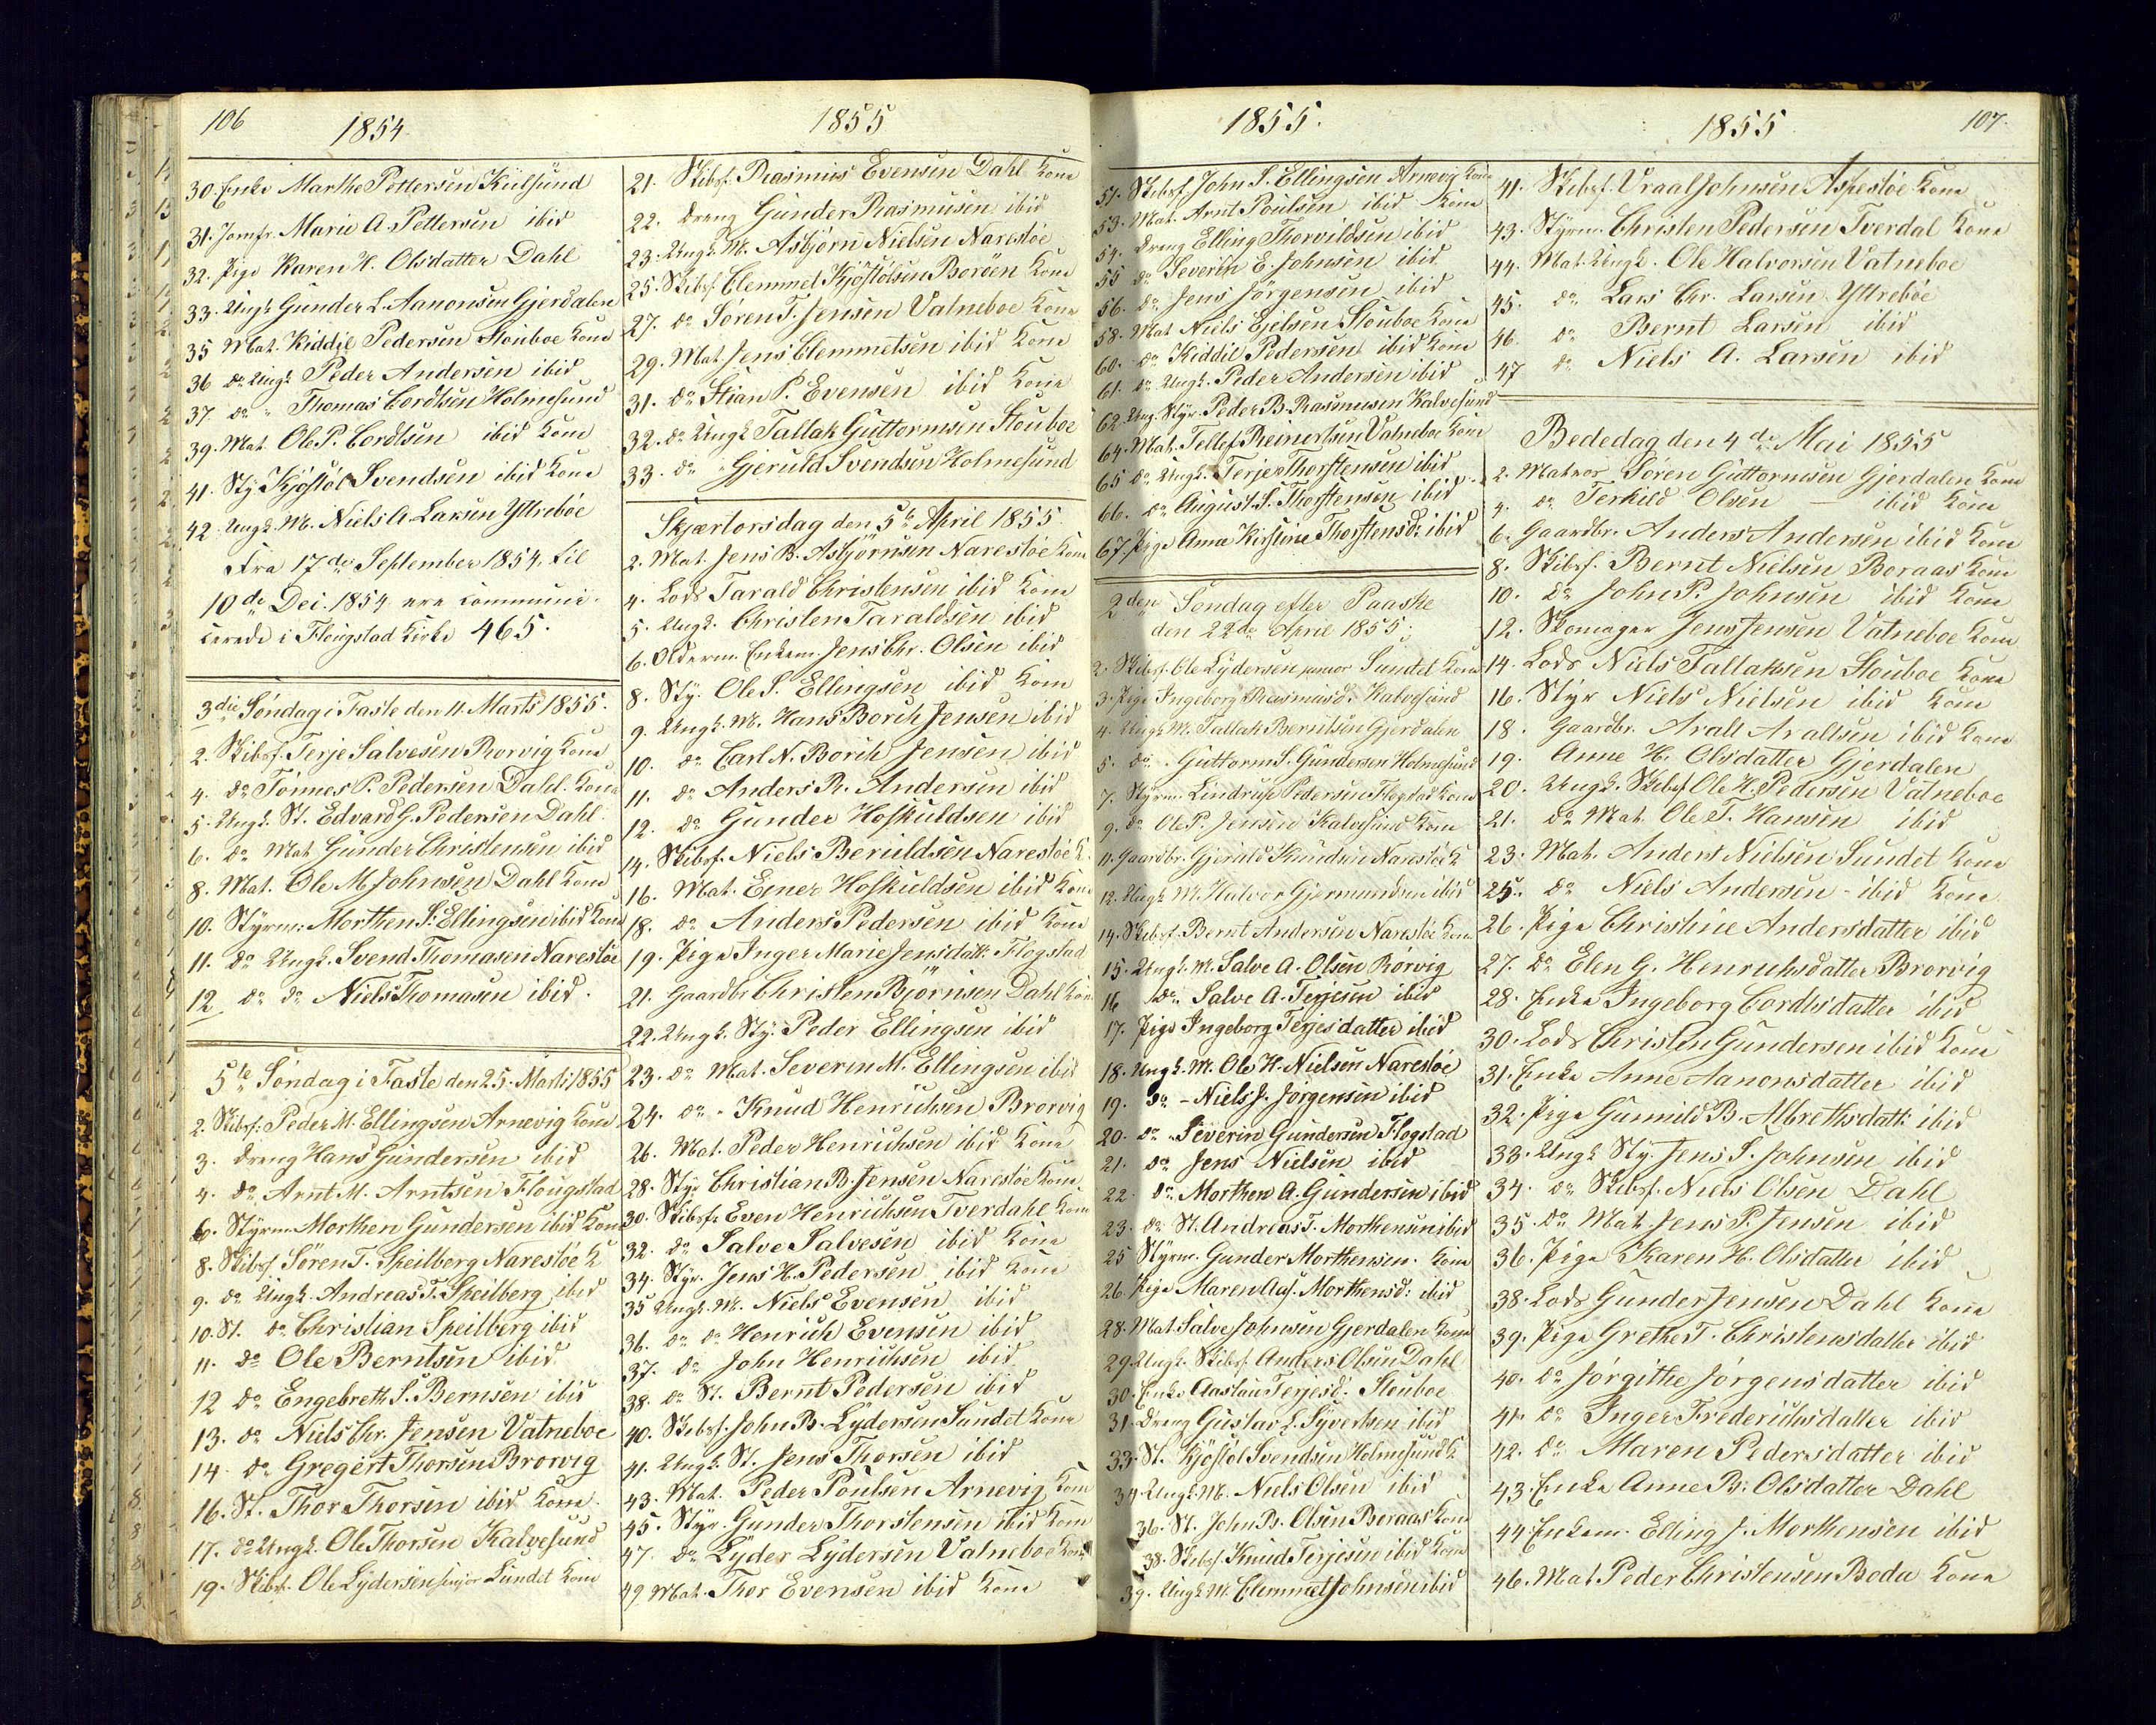 106
1854
30. Enke Marthe Pettersen Kiilsund
31. Jomfr. Marie A. Pettersen ibid
32. Pige Karen H. Olsdatter Dahl
33. Ungk Gunder L. Aanonsen Gjerdalen
35 Mat. Kiddil Pedersen Stouboe Kone
36 do Ungk Peder Andersen ibid
37 do " Thomas Cordtsen Holmesund
39. Mat. Ole P. Cordtsen ibid Kone
41. Sty Kjöstöl Svendsen ibid Kone
42. Ungk. M. Niels A. Larsen Yttreböe
Fra 17de September 1854, til
10de Dec. 1854 ere communi-
cerede i Flougstad Kirke 465.
3die Söndag i Faste den 11. Marts 1855.
2. Skibsf. Terje Salvesen Brorvig Kone
4. do Tönnes P. Pedersen Dahl. Kone
5. Ungk. St. Edvard G. Pedersen Dahl.
6. do Mat Gunder Christensen ibid
8. Mat. Ole M Johnsen Dahl Kone
10. Styrm: Morthen S. Ellingsen ibid Kone
11. do Ungk. Svend Thomasen Narestöe
12 do do Niels Thomasen ibid.
5te Söndag i Faste den 25. Marts 1855
2. Skibsf: Peder M. Ellingsen Arnevig Kone
3. Dreng Hans Gundersen ibid
4. do Arnt M. Arntsen Flougstad
6. Styrm. Morthen Gundersen ibid Kone
8. Skibsf Sören T. Speilberg Narestöe K
9. do Ungk. Andreas T. Speilberg ibid
10. St. do Christian Speilberg ibid
11. do Ole Berntsen ibid
12 do Engebreth S. Bernsen ibid
13. do Niels Chr. Jensen Vatneboe
14. do Gregert Thorsen Brorvig
16. St. Thor Thorsen ibid Kone.
17. do Ungk. Ole Thorsen Kalvesund
19. Skibsf. Ole Lydersen senjor Sundet Kone
1855
21. Skibsf. Rasmus Evensen Dahl Kone
22. Dreng Gunder Rasmusen ibid
23. Ungk. M. Asbjörn Nielsen Narestöe
25. Skibsf. Clemmet Kjöstölsen Boröen Kone
27. do Sören T. Jensen Vatneboe Kone
29. Mat. Jens Clemmetsen ibid Kone
31. do Stian P. Evensen ibid Kone
32. do Ungk Tallak Guttormsen Stouboe
33. do " Gjeruld Svendsen Holmesund
Skjærtorsdag den 5te April 1855.
2. Mat. Jens B. Asbjörnsen Narestöe Kone
4. Lods Tarald Christensen ibid Kone
5. Ungk. Christen Taraldsen ibid
6. Olderm. Enkem. Jens Chr. Olsen ibid
8. Sty. Ole S. Ellingsen ibid Kone
9. Ungk. M. Hans Borch Jensen ibid
10. do Carl N. Borch Jensen ibid
11. do Anders R. Andersen ibid
12. do Gunder Hoskuldsen ibid
14. Skibsf. Niels Beruldsen Narestöe K.
16. Mat. Einer Hoskuldsen ibid Kone
18. do Anders Pedersen ibid Kone
19. Pige Inger Marie Jensdatt: Flogstad
21. Gaardbr Christen Björnsen Dahl Kone
22. Ungk. Sty. Peder Ellingsen ibid
23. do Mat. Severin M. Ellingsen ibid
24. do - Knud Henrichsen Brorvig
26. Mat. Peder Henrichsen ibid Kone
28. Sty. Christian B. Jensen Narestöe Kone
30. Skibsf. Even Henrichsen Tverdahl Kone
32. do Salve Salvesen ibid Kone
34. Styr. Jens H. Pedersen ibid Kone
35 Ungk. M. Niels Evensen ibid
36. do do Henrich Evensen ibid
37. do John Henrichsen ibid
38. do St. Bernt Pedersen ibid
40. Skibsf. John B. Lydersen Sundet Kone
41. Ungk. St. Jens Thorsen ibid
43. Mat. Peder Poulsen Arnevig Kone
45. Styr. Gunder Thorstensen ibid Kone
47. do Lyder Lydersen Vatneboe Kone
49 Mat. Thor Evensen ibid Kone
1855.
51. Skibsf. John S. Ellingsen Arnevig Kone
53. Mat. Arnt Poulsen ibid Kone
54. Dreng Elling Thorvildsen ibid
55 do Severin E. Johnsen ibid
56. do Jens Jörgensen ibid
58. Mat Niels Ejelsen Stouboe Kone
60. do Kiddil Pedersen ibid Kone
61. do Ungk. Peder Andersen ibid
62. Ung. Styr. Peder B. Rasmusen Kalvesund
64. Mat. Tellef Reinertsen Vatneboe Kone
65 do Ungk. Terje Thorstensen ibid
66. do August S. Thorstensen ibid
67. Pige Anna Kirstine Thorstensd: ibid
2den Söndag efter Paaske
den 22de April 1855.
2. Skibsf. Ole Lydersen junior Sundet Kone
3. Pige Ingeborg Rasmusd. Kalvesund
4. Ungk M. Tallak Berntsen Gjerdalen
5. do. Guttorm S. Gundersen Holmesund
7. Styrm. Lindruf Pedersen Flogstad Kone
9. do Ole P. Jensen Kalvesund Kone
11. Gaardbr. Gjeruld Knudsen Narestöe K
12. Ungk M. Halvor Gjermundsen ibid
14. Skibsf. Bernt Andersen Narestöe Kone
15. Ungk. M. Salve A. Olsen Rörvig
16 do. Salve A. Terjesen ibid
17. Pige Ingeborg Terjesdatter ibid
18. Ungk. M. Ole H. Nielsen Narestöe
19. do - Niels J. Jörgensen ibid
20. do - Severin Gundersen Flogstad
21. do Jens Nielsen ibid
22. do. Morthen A. Gundersen ibid
23. do St. Andreas T. Morthensen ibid
25 Styrm. Gunder Morthensen. Kone
26. Pige Maren Aas. Morthensd: ibid
28. Mat. Salve Johnsen Gjerdalen Kone
29. Ungk. Skibsf. Anders Olsen Dahl
30. Enke Aaslau Terjesd. Stouboe
31. Dreng Gustav L. Syvertsen ibid
33. St. Kjöstol Svendsen Holmesund K.
34 Ungk M. Niels Olsen ibid
36. St. John B. Olsen Boraas Kone
38. Skibsf. Knud Terjesen ibid Kone
39. Ungk M. Clemmet Johnsen ibid
1855
107.
41. Skibsf. Vraal Johnsen Aspestöe Kone
43. Styrm. Christen Pedersen Tverdal Kone
44. Mat. Ungk. Ole Halvorsen Vatneboe
45. do Lars Chr. Larsen Yttreböe
46. do Bernt Larsen ibid
47 do Niels A. Larsen ibid
Bededag den 4de Mai 1855
2. Matros Sören Guttormsen Gjerdalen Kone
4. do Terkild Olsen — ibid Kone
6. Gaardbr. Anders Andersen ibid Kone
8. Skibsf. Bernt Nielsen Boraas Kone
10. do John P. Johnsen ibid Kone
12. Skomager Jens Jensen Vatneboe Kone
14. Lods Niels Tallaksen Stouboe Kone
16. Styr Niels Nielsen ibid Kone
18. Gaardbr. Aralt Araltsen ibid Kone
19. Anne H. Olsdatter Gjerdalen
20. Ungk. Skibsf Ole H. Pedersen Vatneboe
21. do Mat. Ole T. Hansen ibid
23. Mat. Anders Nielsen Sundet Kone
25. do Niels Andersen - ibid Kone
26. Pige Christine Andersdatter ibid
27. do Elen G. Henrichsdatter Brorvig
28. Enke Ingeborg Cordtsdatter ibid
30. Lods Christen Gundersen ibid Kone
31. Enke Anne Aanonsdatter ibid
32. Pige Gunnild B. Albrethsdatt: ibid
33. Ungk Sty. Jens S. Johnsen ibid
34. do Skibsf. Niels Olsen Dahl
35. do Mat. Jens P. Jensen ibid
36. Pige Karen H. Olsdatter ibid
38. Lods Gunder Jensen Dahl Kone
39. Pige Grethe T. Christensdatter ibid
40. do Jörgithe Jörgensdatter ibid
41. do Inger Frederichsdatter ibid
42. do Maren Pedersdatter ibid
43. Enke Anne B. Olsdatter Dahl
44. Enkem. Elling J. Morthensen ibid
46. Mat. Peder Christensen Bodu Kone